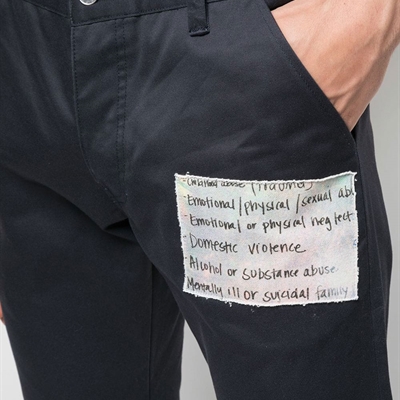 - Childhood abuse (trauma)
- Emotional/physical/sexual ab
- Emotional or physical neglect
- Domestic violence
- Alcohol or substance abuse
- Mentally ill or suicidal family